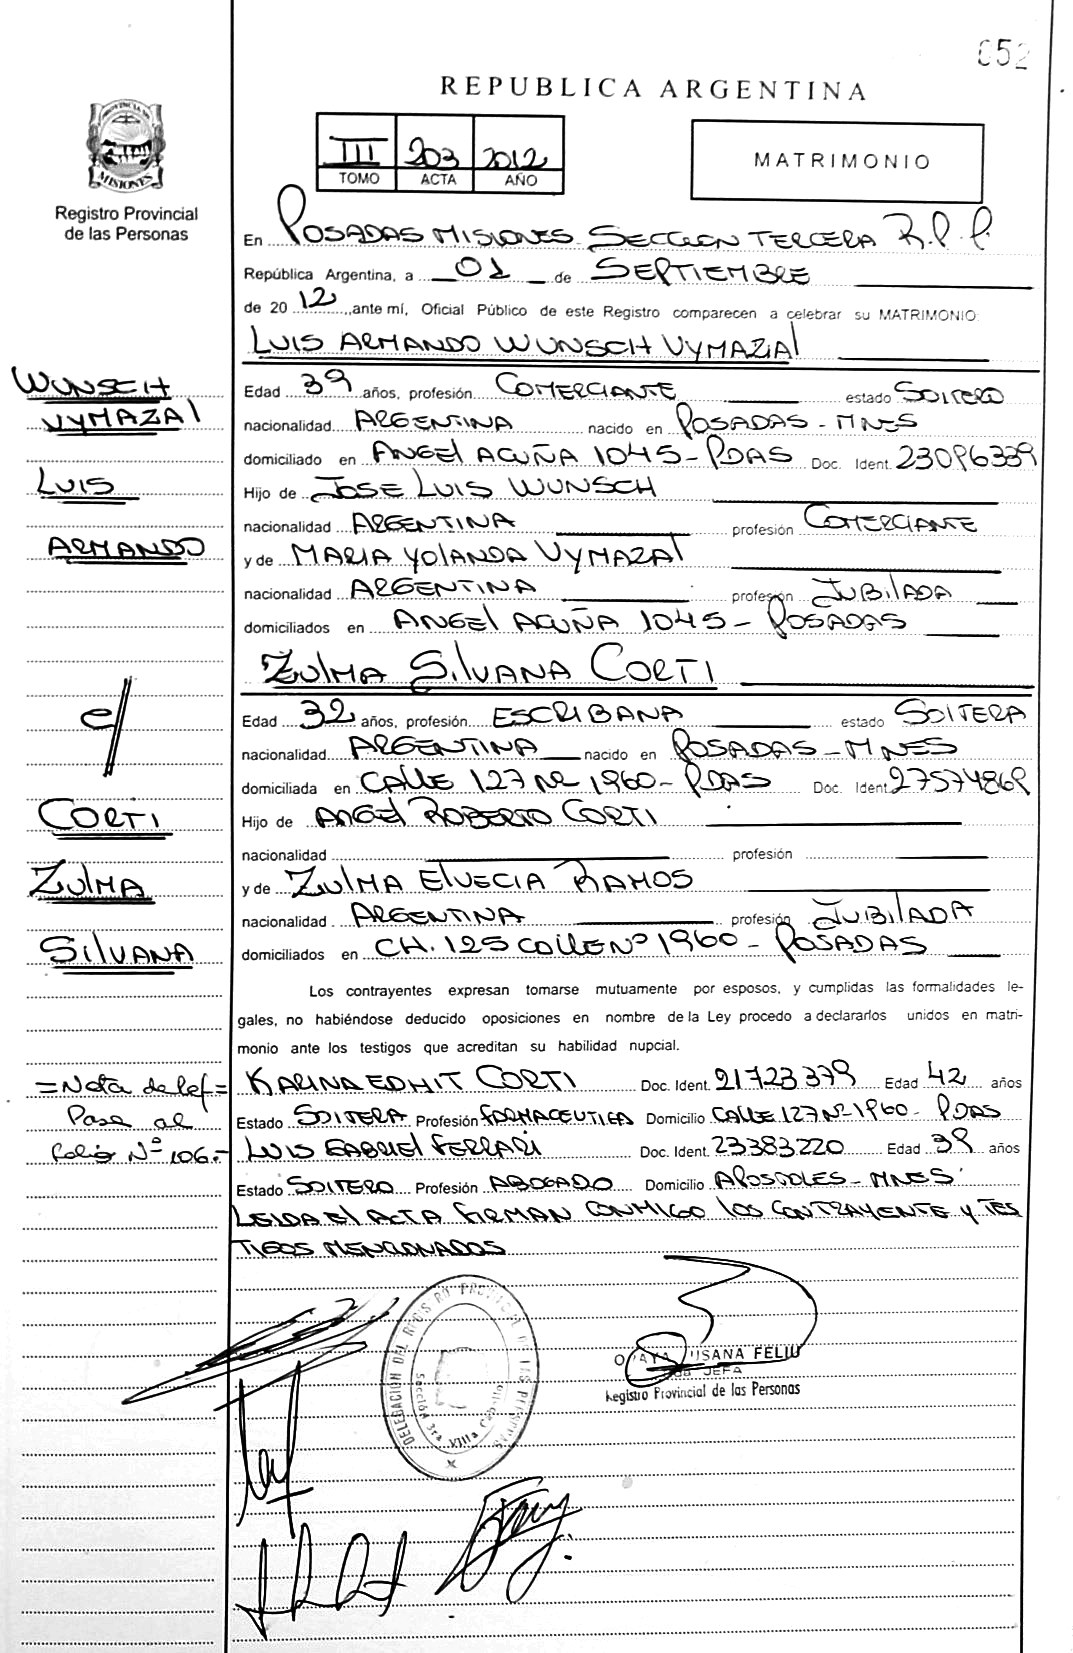 052
REPUBLICA ARGENTINA
PROVINCIA DE
MISIONES
Registro Provincial
de las Personas
III 203 2012
TOMO ACTA AÑO
MATRIMONIO
En POSADAS MISIONES SECCION TERCERA R.P.P.
República Argentina, a 01 de SEPTIEMBRE
de 2012, ante mí, Oficial Público de este Registro comparecen a celebrar su MATRIMONIO:
LUIS ARMANDO WUNSCH VYMAZAL
WUNSCH
VYMAZAL
LUIS
ARMANDO
Edad 39 años, profesión COMERCIANTE estado SOLTERO
nacionalidad ARGENTINA nacido en POSADAS - MNES
domiciliado en ANGEL ACUÑA 1045 - PDAS Doc. Ident. 23096339
Hijo de JOSE LUIS WUNSCH
nacionalidad ARGENTINA profesión COMERCIANTE
y de MARIA YOLANDA VYMAZAL
nacionalidad ARGENTINA profesión JUBILADA
domiciliados en ANGEL ACUÑA 1045 - POSADAS
ZULMA SILVANA CORTI
c/
CORTI
ZULMA
SILVANA
Edad 32 años, profesión ESCRIBANA estado SOLTERA
nacionalidad ARGENTINA nacido en POSADAS - MNES
domiciliada en CALLE 127 Nº 1960 - PDAS Doc. Ident. 27574869
Hijo de ANGEL ROBERTO CORTI
nacionalidad profesión
y de ZULMA ELVECIA RAMOS
nacionalidad ARGENTINA profesión JUBILADA
domiciliados en CH. 125 CALLE Nº 1960 - POSADAS
Los contrayentes expresan tomarse mutuamente por esposos, y cumplidas las formalidades le-
gales, no habiéndose deducido oposiciones en nombre de la Ley procedo a declararlos unidos en matri-
monio ante los testigos que acreditan su habilidad nupcial.
= Nota de Ref =
Pasa al
folio Nº 106.-
KARINA EDHIT CORTI Doc. Ident. 21723379 Edad 42 años
Estado SOLTERA Profesión FARMACEUTICA Domicilio CALLE 127 Nº 1960 - PDAS
LUIS GABRIEL FERRARI Doc. Ident. 23383220 Edad 39 años
Estado SOLTERO Profesión ABOGADO Domicilio APOSTOLES - MNES
LEIDA EL ACTA FIRMAN CONMIGO LOS CONTRAYENTE Y TES
TIGOS MENCIONADOS
DELEGACION DEL REGISTRO PROVINCIAL DE LAS PERSONAS
Sección 3ra. Villa Cabello
SUSANA FELIU
SUB JEFA
Registro Provincial de las Personas